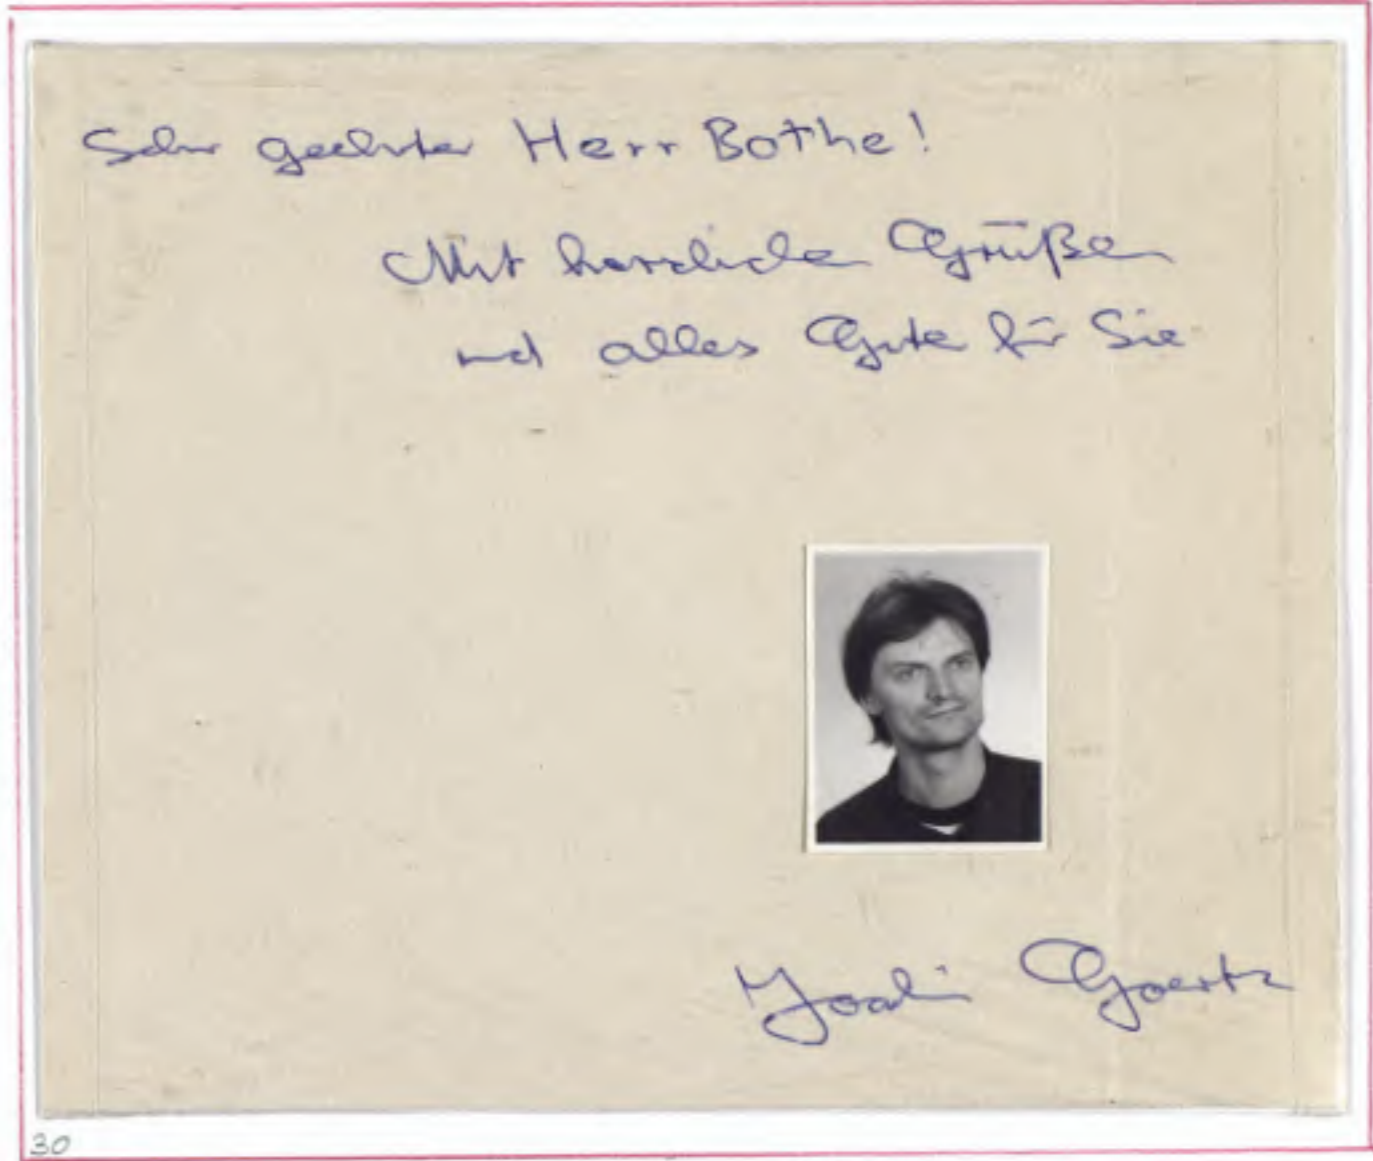 Sehr geehrter Herr Bothe!
Mit herzlichen Grüßen
und alles Gute für Sie
Joachim Goertz
30